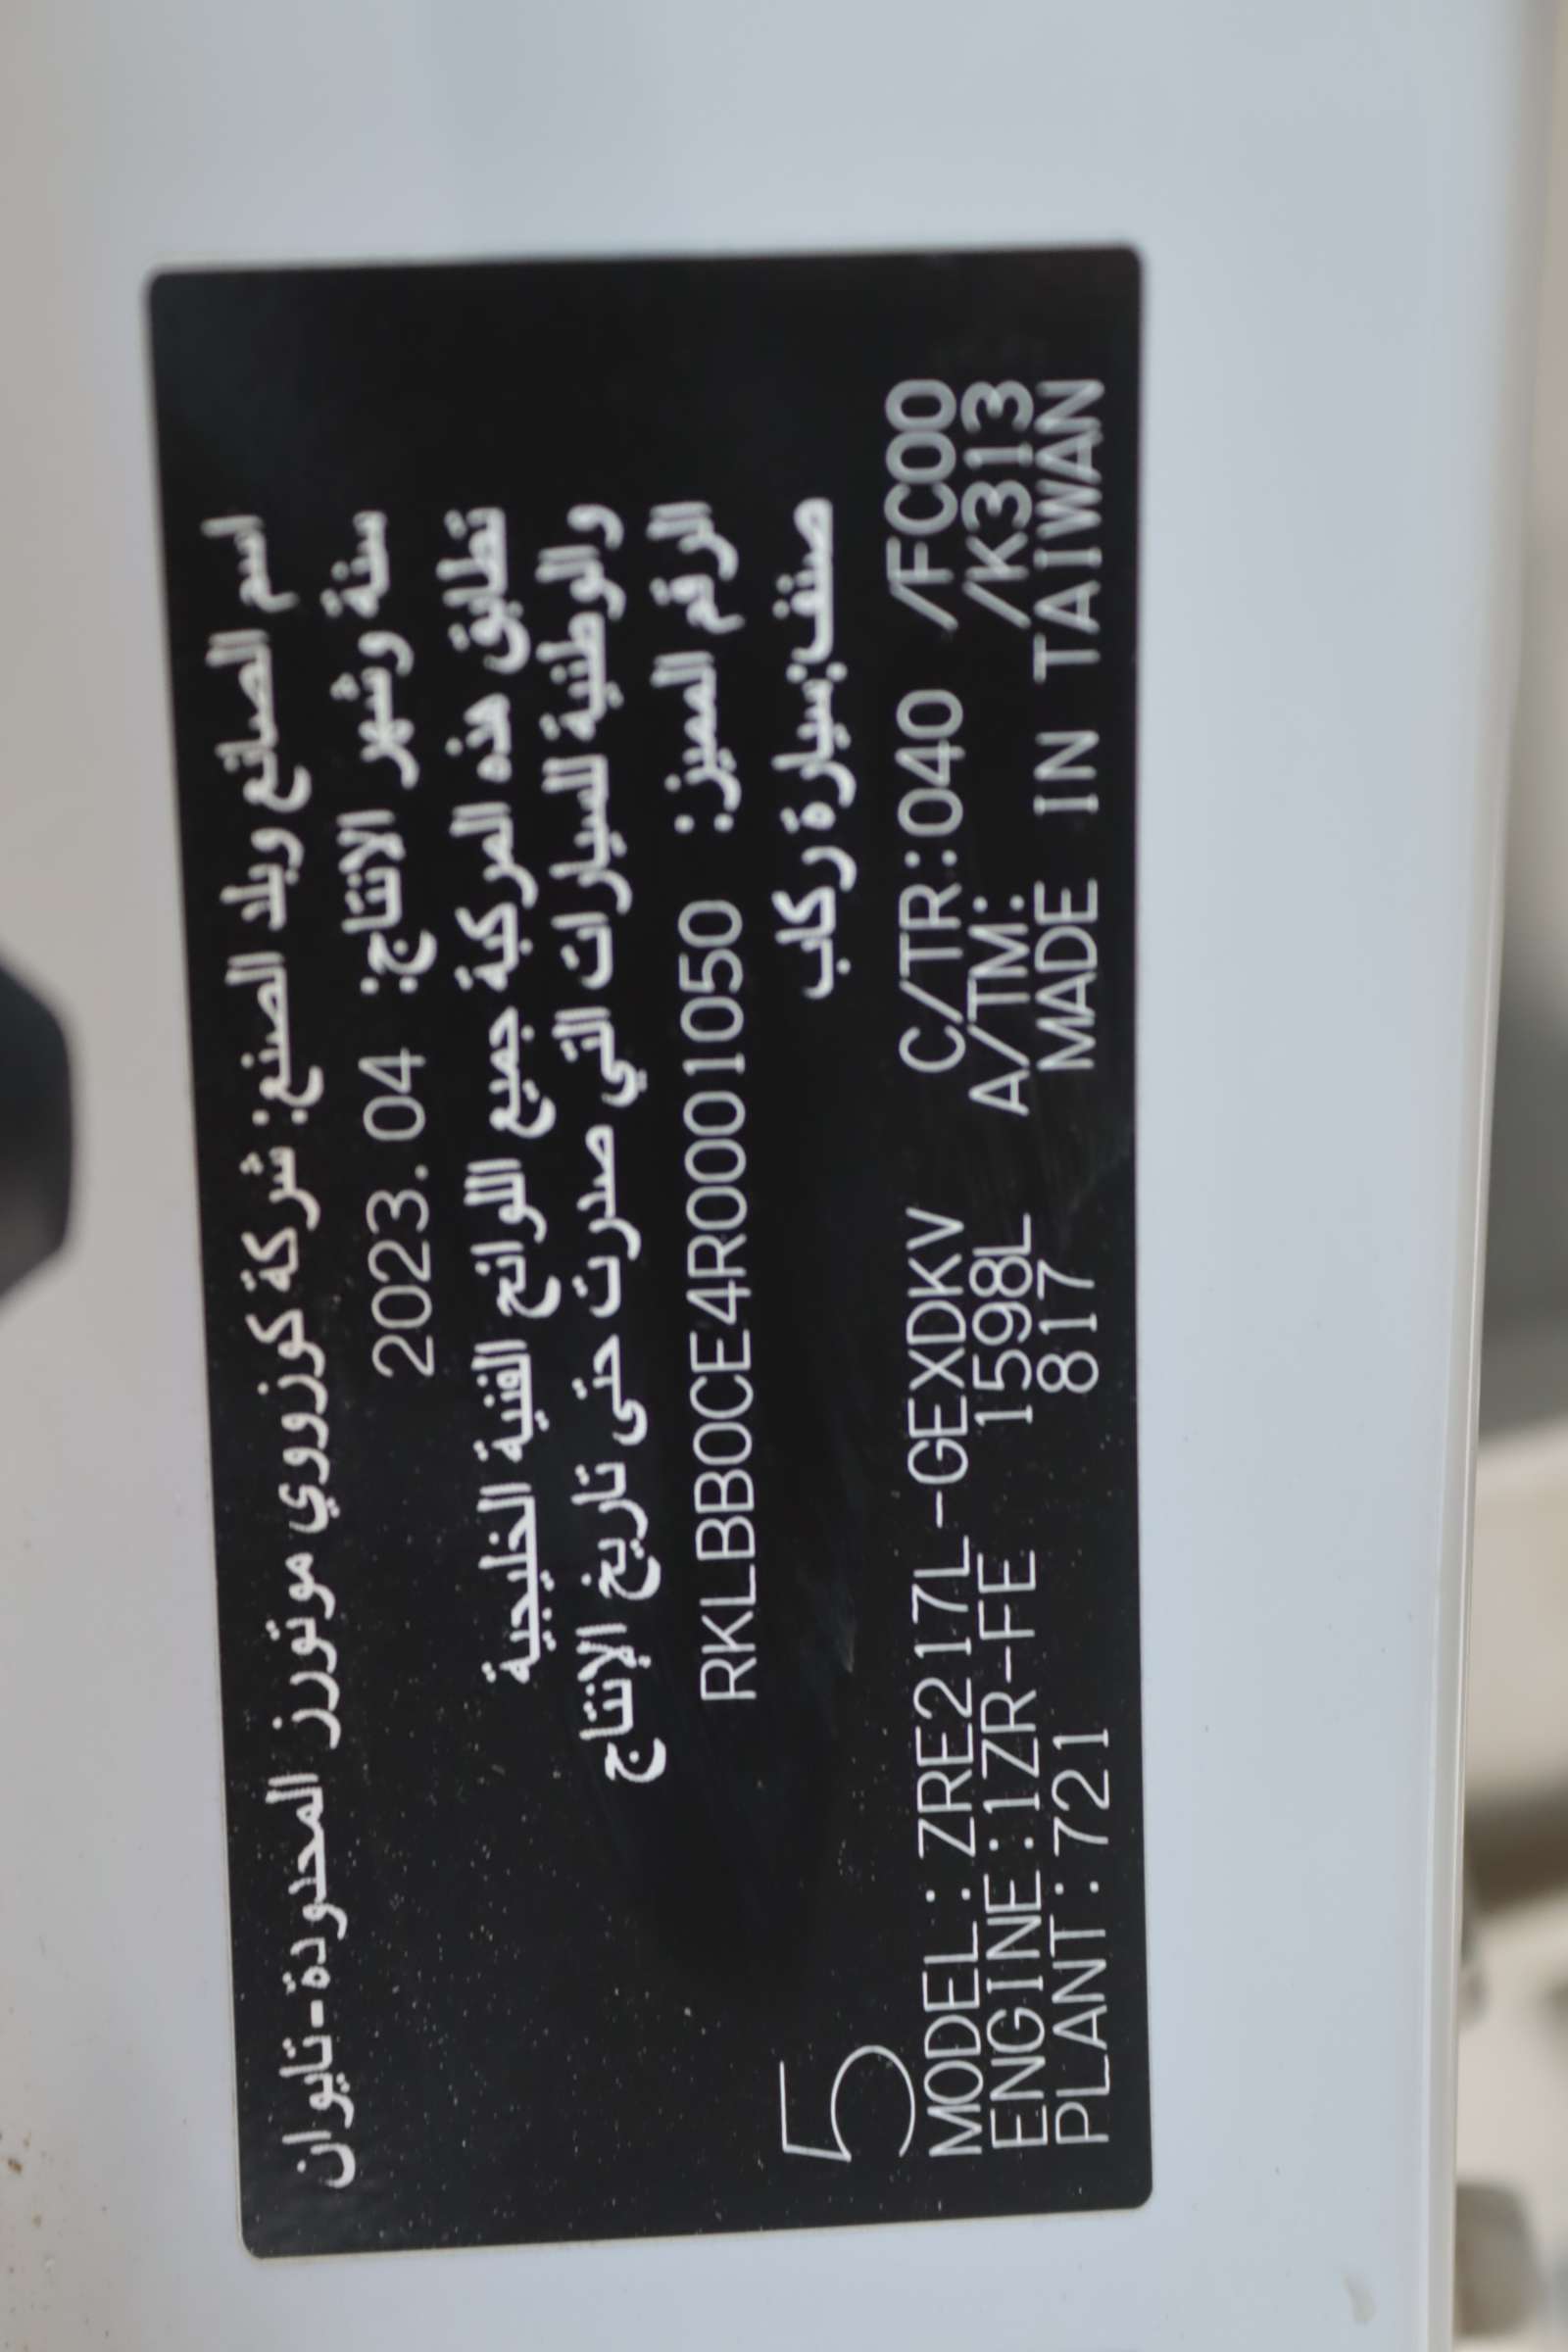 اسم الصانع وبلد الصنع: شركة كوزووي موتورز المحدودة-تايوان
سنة وشهر الانتاج: 2023.04
تطابق هذه المركبة جميع اللوائح الفنية الخليجية
والوطنية للسيارات التي صدرت حتى تاريخ الإنتاج
الرقم المميز: RKLBB0CE4R0001050
صنف:سيارة ركاب
5
MODEL:ZRE217L-GEXDKV C/TR:040 /FC00
ENGINE:1ZR-FE 1598L A/TM: /K313
PLANT:721 817 MADE IN TAIWAN